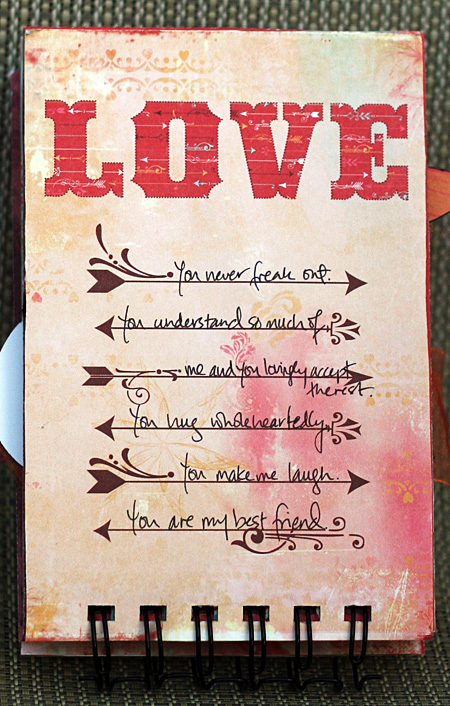 LOVE
You never freak out.
You understand so much of
me and you lovingly accept
the rest.
You hug wholeheartedly.
You make me laugh.
You are my best friend.